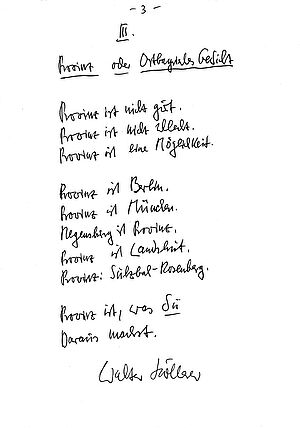 - 3 -
III.
Provinz oder
Provinz ist nicht gut.
Provinz ist nicht schlecht.
Provinz ist eine Möglichkeit.
Provinz ist Berlin.
Provinz ist München.
Regensberg ist Provinz.
Provinz ist Landshut.
Provinz: Sulzbach-Rosenberg.
Provinz ist, was Du
Daraus machst.
Walter Höllerer